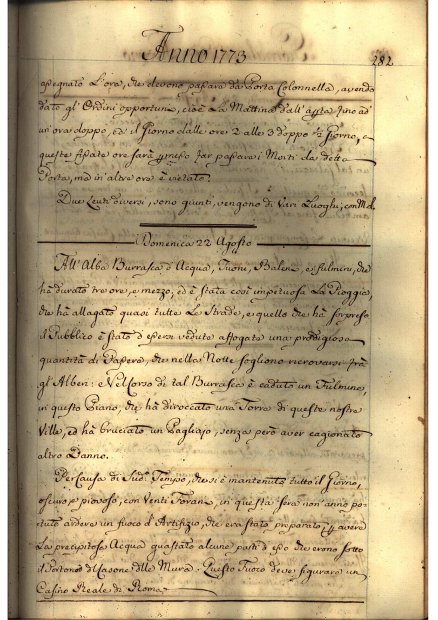 Anno 1773
282
assegnato l'ora, che devono passare da Porta Colonnella, avendo
dato gl'Ordini opportuni, cioè la Mattina dall'alta sino ad
un'ora doppo, ed il Giorno dalle ore 2 alle 3 doppo ½ Giorno, e
queste fissate ore sarà permesso far passare i Morti da detta
Porta, ma in altre ore è vietato.
Due Leuti diversi, sono giunti, vengono di Varj Luoghi, con
Domenica 22 Agosto
All'Alba Burrasca d'Acqua, Tuoni, Baleni, e fulmini, che
hà durato tre ore, e mezzo, ed è stata così impetuosa la Pioggia,
che hà allagato quasi tutte le Strade, e quello che hà sorpreso
il Pubblico è stato d'essersi vedute affogate una prodigiosa
quantità di Passere, che nella Notte sogliono ricovrarsi frà
gl'Alberi: Nel Corso di tal Burrasca è caduto un Fulmine,
in questo Piano, che hà diroccato una Torre di queste nostre
Ville, ed hà bruciato un Pagliajo, senza però aver cagionato
altro Danno.
Per Causa di Sud.º Tempo, che si è mantenuto tutto il Giorno,
oscuro, e piovoso, con Venti Forani, in questa sera non anno po-
tuto ardere un fuoco d'Artifizio, che era stato preparato, per avere
la precipitosa Acqua guastato alcune parti d'esso che erono sotto
il Portone d'Casone delle Mura. Questo Fuoco deve figurare un
Casino Reale di Roma